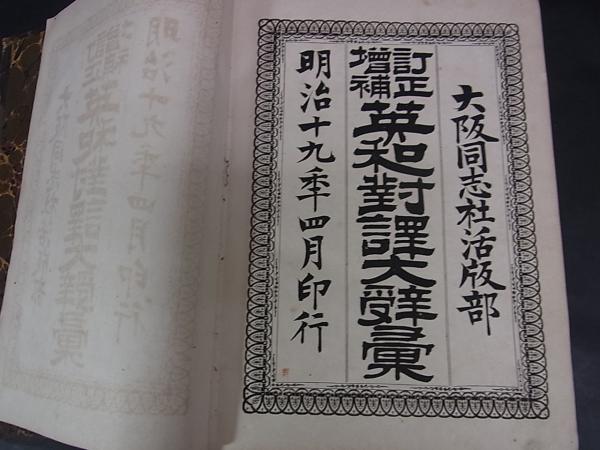 大阪同志社活版部
訂正
增補
英和對譯大辭彙
明治十九年四月印行